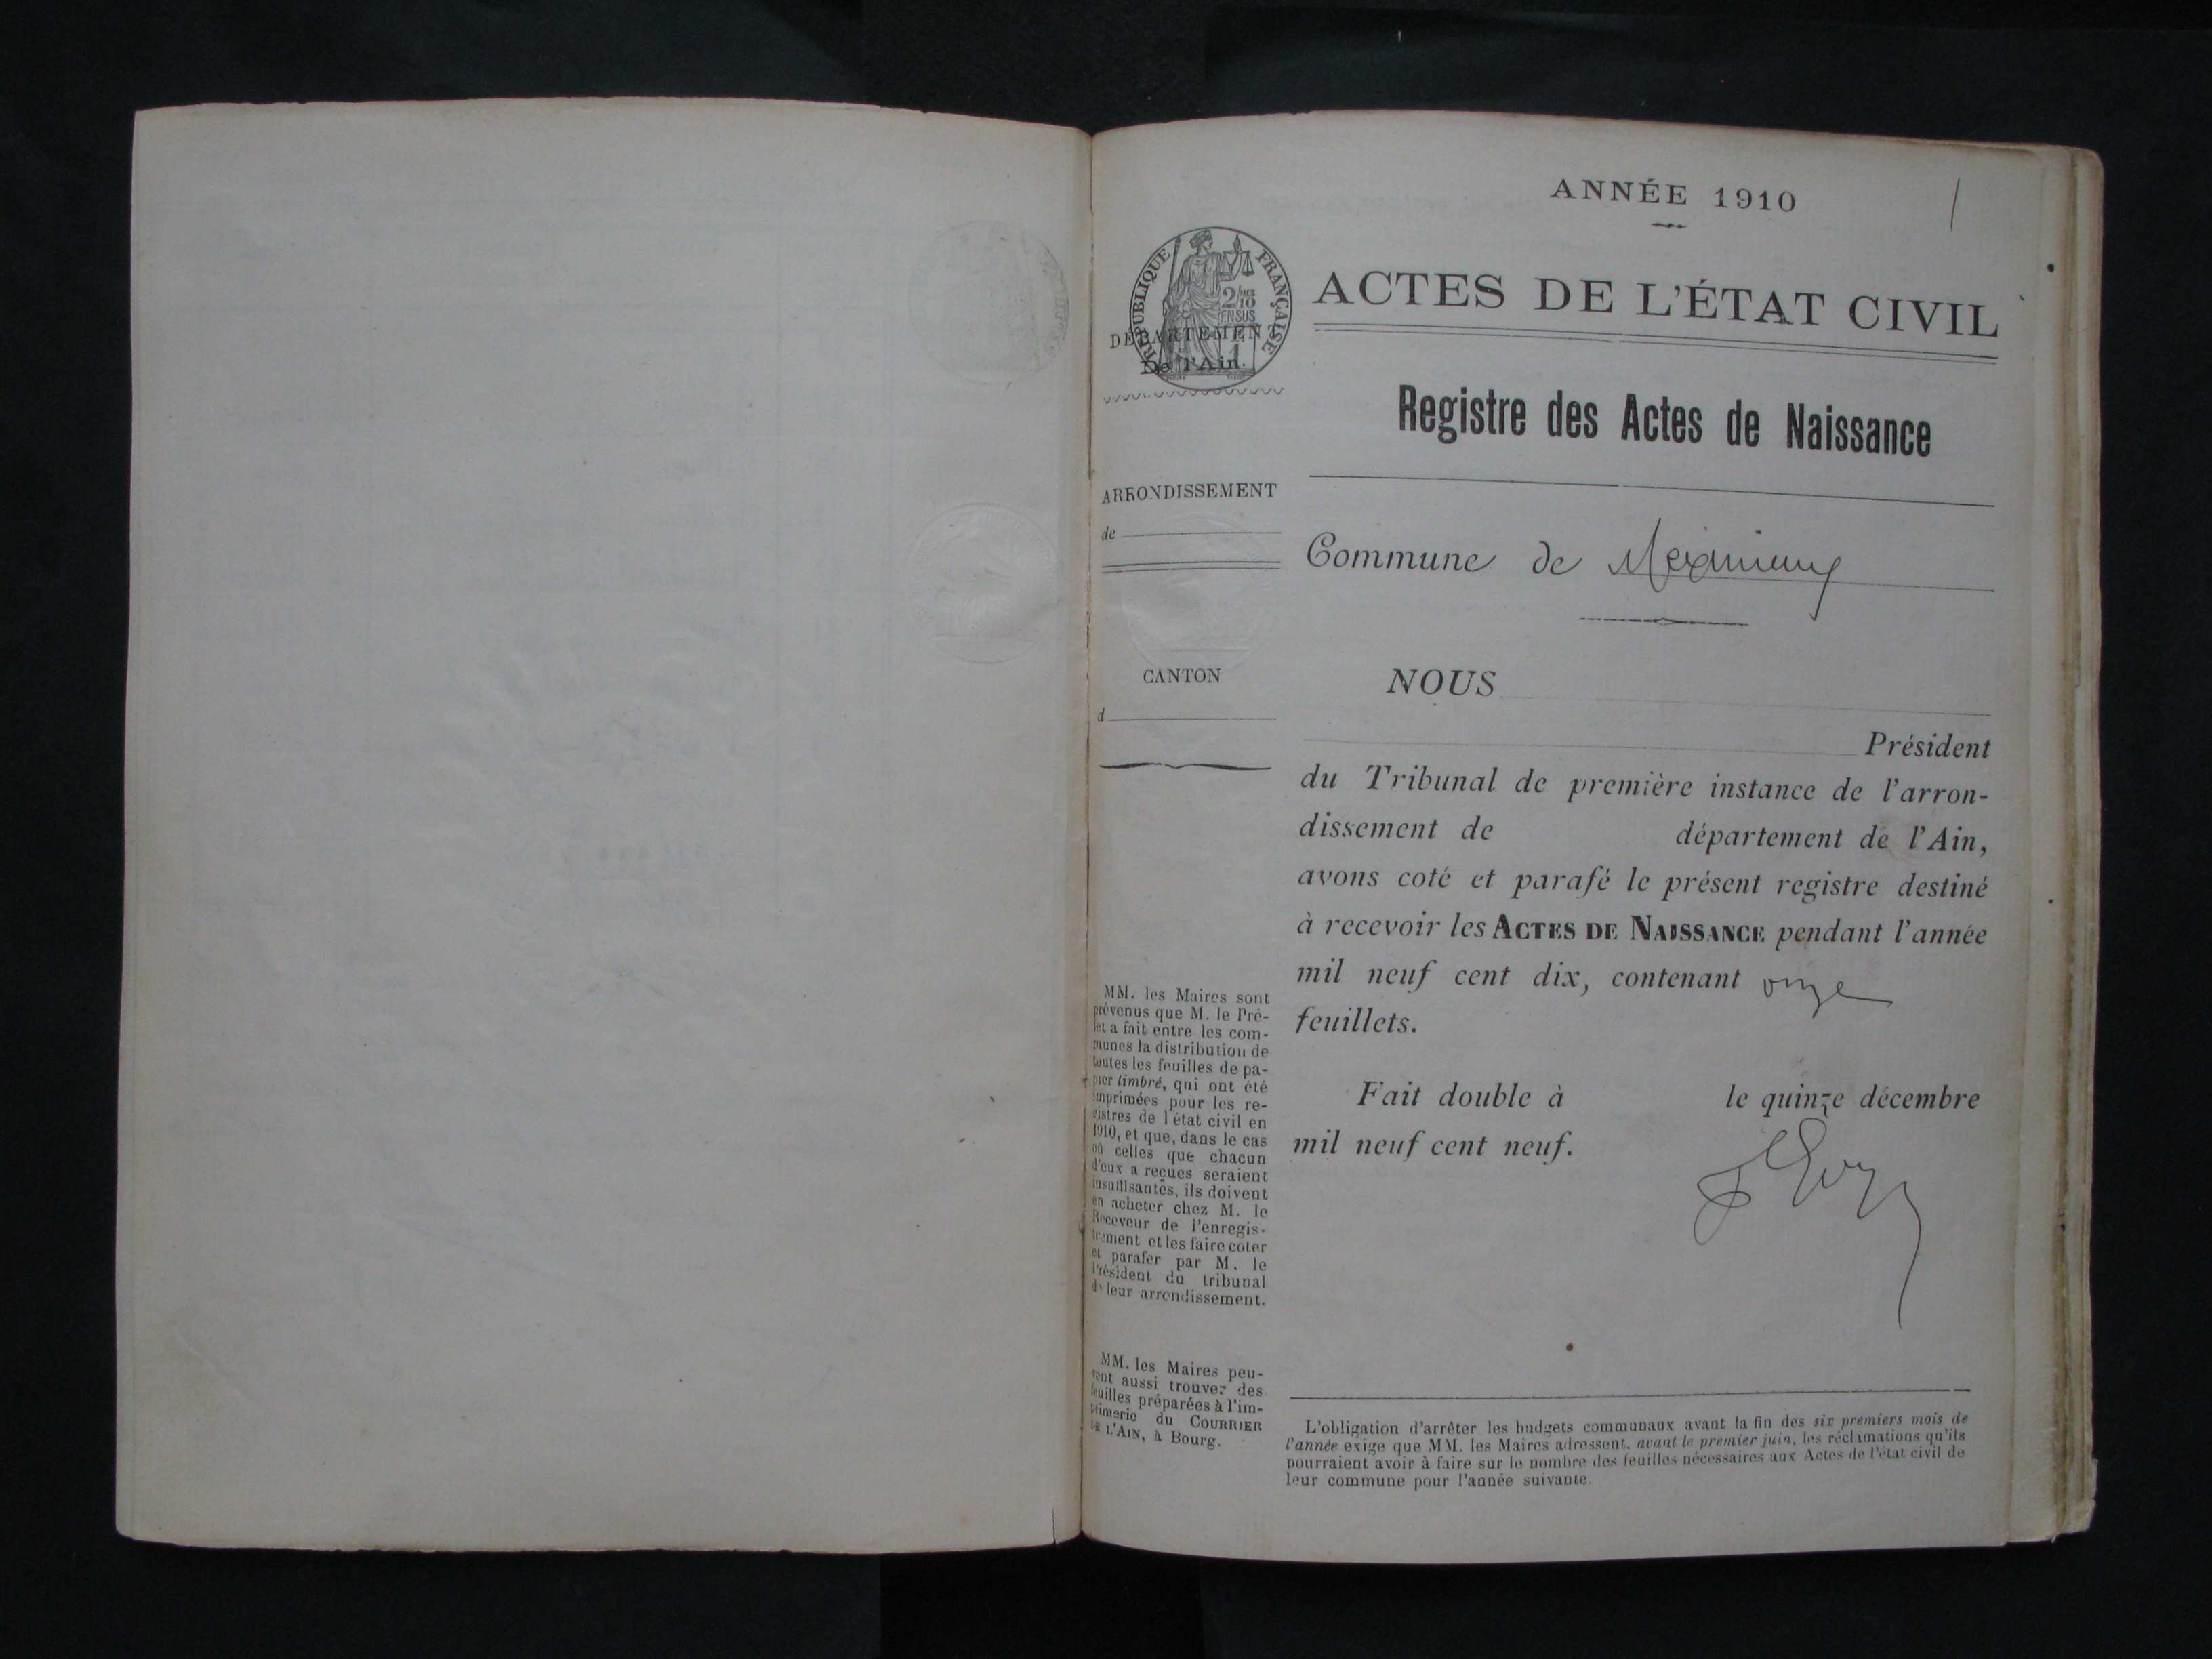 ANNÉE 1910
1
RÉPUBLIQUE FRANÇAISE
2/10
EN SUS
DÉPARTEMENT
De l'Ain.
ACTES DE L'ÉTAT CIVIL
Registre des Actes de Naissance
ARRONDISSEMENT
de
Commune de Meximieux
CANTON
d
NOUS
Président
du Tribunal de première instance de l'arron-
dissement de département de l'Ain,
avons coté et parafé le présent registre destiné
à recevoir les ACTES DE NAISSANCE pendant l'année
mil neuf cent dix, contenant onze
feuillets.
Fait double à le quinze décembre
mil neuf cent neuf.
MM. les Maires sont
prévenus que M. le Pré-
fet a fait entre les com-
munes la distribution de
toutes les feuilles de pa-
pier timbré, qui ont été
imprimées pour les re-
gistres de l'état civil en
1910, et que, dans le cas
où celles que chacun
d'eux a reçues seraient
insuffisantes, ils doivent
en acheter chez M. le
Receveur de l'enregis-
trement et les faire coter
et parafer par M. le
Président du tribunal
de leur arrondissement.
MM. les Maires peu-
vent aussi trouver des
feuilles préparées à l'im-
primerie du COURRIER
DE L'AIN, à Bourg.
L'obligation d'arrêter les budgets communaux avant la fin des six premiers mois de
l'année exige que MM. les Maires adressent, avant le premier juin, les réclamations qu'ils
pourraient avoir à faire sur le nombre des feuilles nécessaires aux Actes de l'état civil de
leur commune pour l'année suivante.